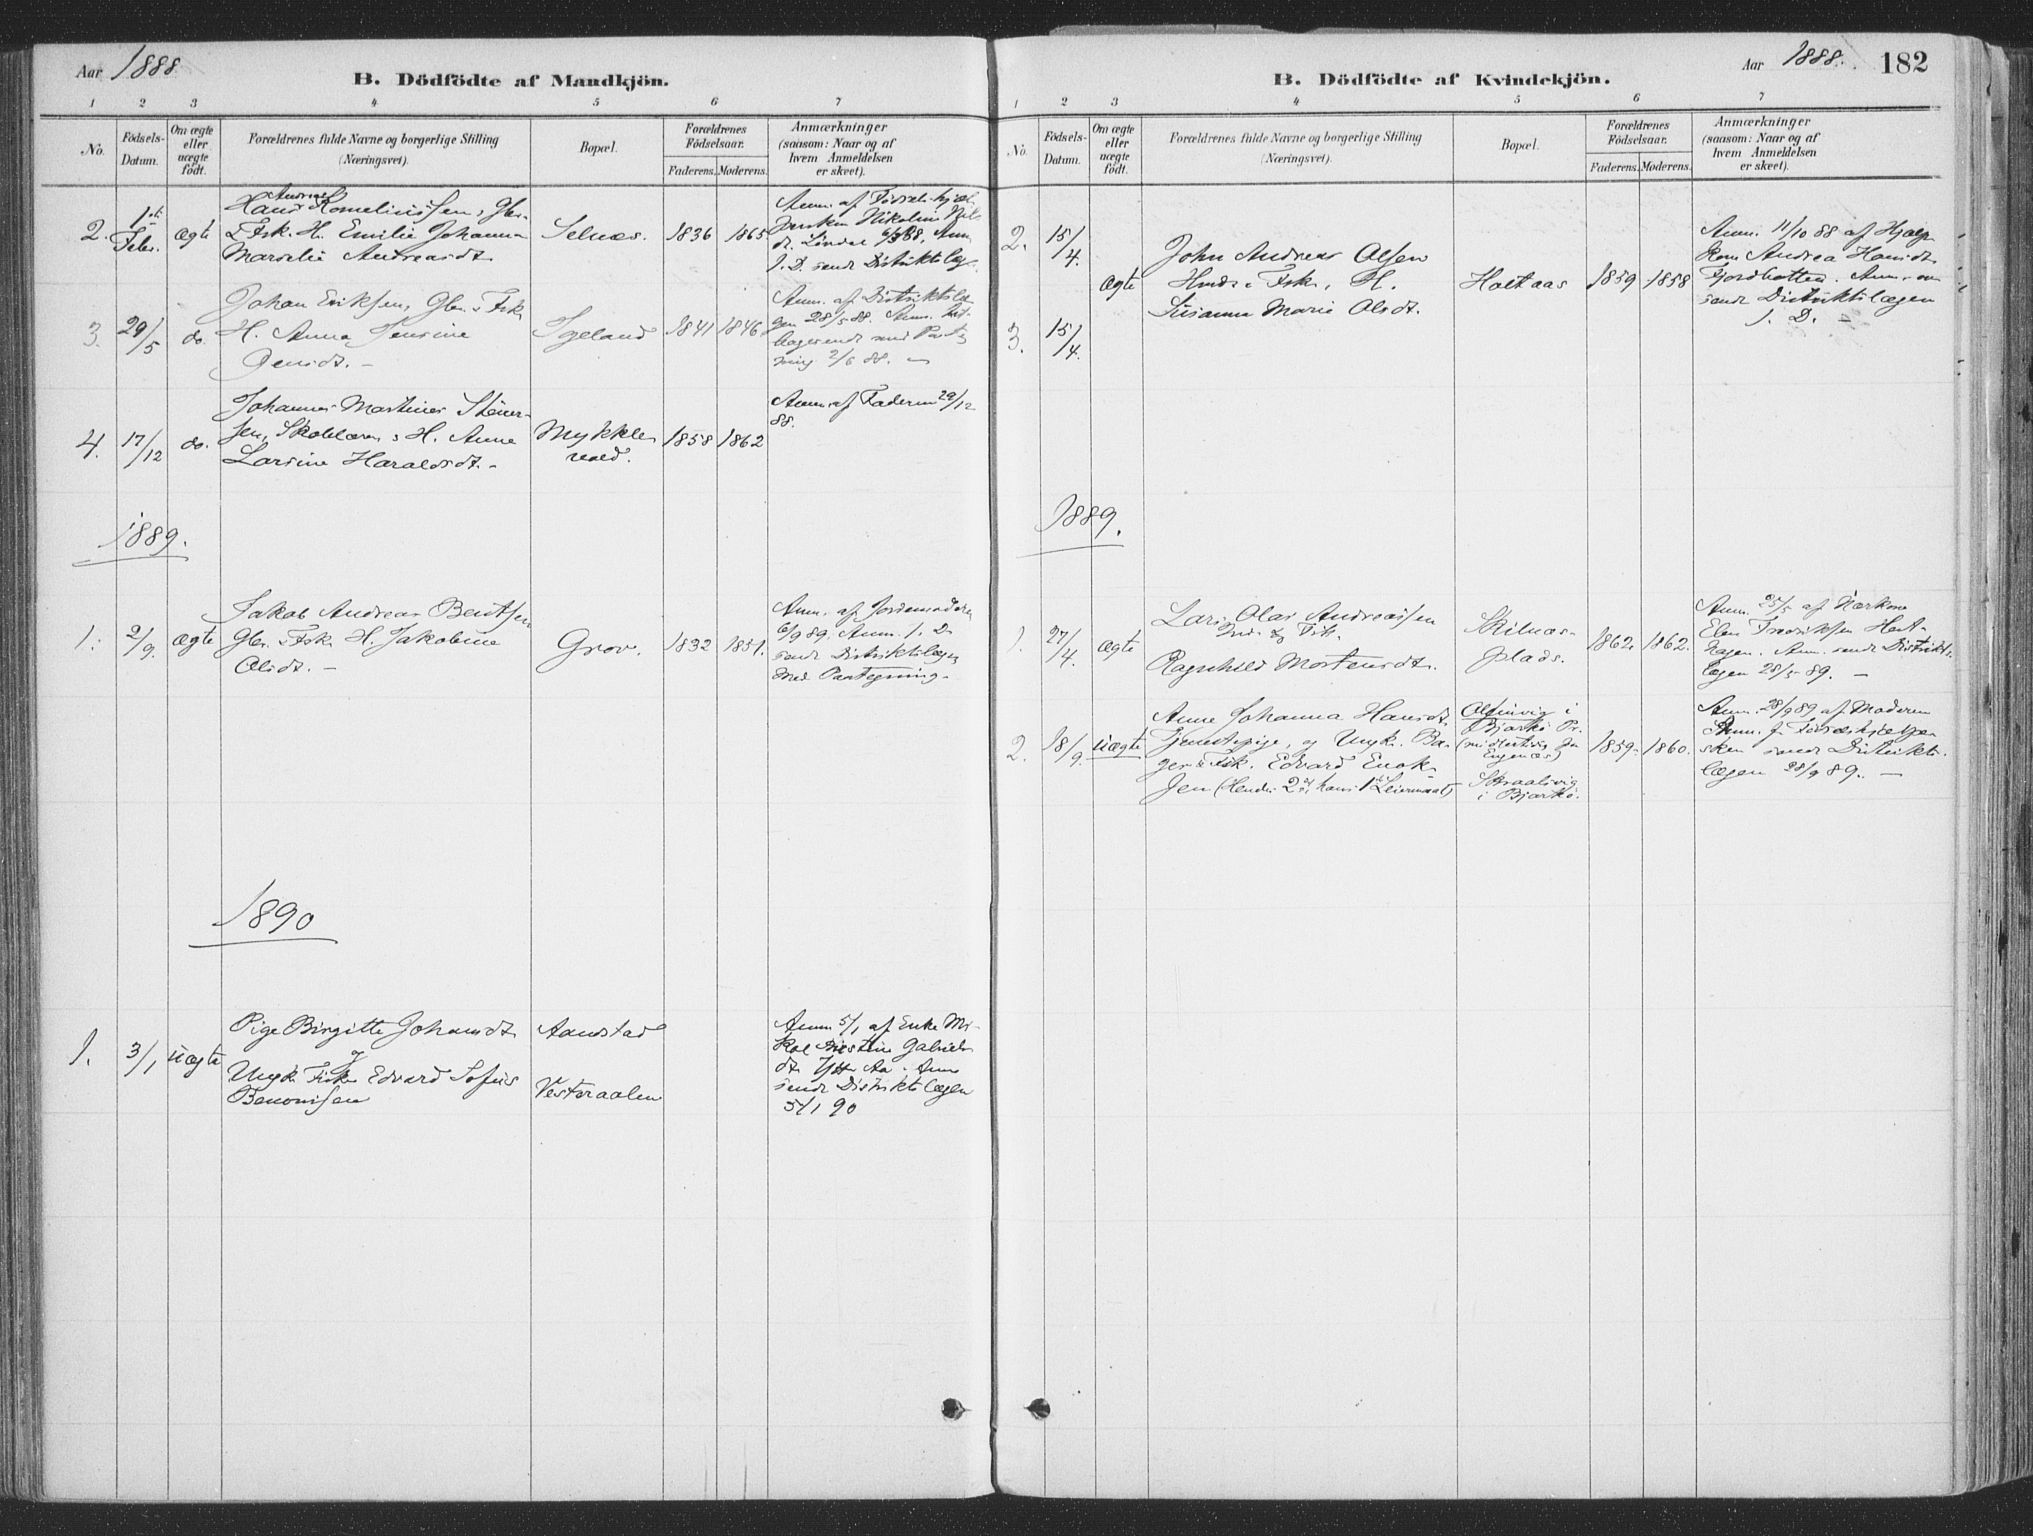 Aar 1888
B. Dödfödte af Mandkjön.
1 2 3 4 5 6 7
No.
Födsels-
Datum.
Om ægte
eller
uægte
født.
Forældrenes fulde Navne og borgerlige Stilling
(Næringsvei).
Bopæl.
Forældrenes
Födselsaar.
Faderens. Moderens.
Anmærkninger
(saasom: Naar og af
hvem Anmeldelsen
er skeet).
2. 1ste Febr. ægte
Andreas
Hans Korneliussen, Gbr.
Fsk. H. Emilie Johanna
Marselie Andreasdt.
Selnæs. 1836 1865
Anm. af
Nikoline
6/3 88. Anm.
s. D. sendt Distriktslæg.
3. 29/5 do.
Johan Eriksen, Gbr. & Fsk.
H. Anna Jensine
Jensdt. -
Igeland 1841 1846
Anm. af Distriktslæ
gen 28/5 88. Anm.
med Pa
ning 2/6 88. -
4. 17/12 do.
Johannes Martinus Stener-
sen, Skolelærer, H. Anne
Larsine Haraldsdt. -
Mykkle
vold.
1858 1862
Anm. af Faderen 29/12
88.
1889.
1. 2/9 ægte
Jakob Andreas Bentsen
Gbr. & Fsk. H. Jakobine
Olsdt. -
Grov. 1832 1851.
Anm. af Jordemoderen
6/9 89. Anm. s. D.
sendt Distriktslægen
med Paategning.
1890
1. 3/1 uægte
Pige Birgitte Johansdt.
og
Ungk. Fisk. Edvard Sofus
Benonisen
Aanstad
Vesteraalen
Anm 5/1 af Enke
Gabriels
dt. Ytt. Aa. Anm
sendt Distriktslægen
5/1 90
Aar 1888. 182
B. Dödfödte af Kvindekjön.
1 2 3 4 5 6 7
No.
Födsels-
Datum.
Om ægte
eller
uægte
födt.
Forældrenes fulde Navne og borgerlige Stilling
(Næringsvei).
Bopæl.
Forældrenes
Födselsaar.
Faderens. Moderens.
Anmærkninger
(saasom: Naar og af
hvem Anmeldelsen
er skeet).
2. 15/4.
3. 15/4.
ægte
John Andreas Olsen
Fsk., H.
Susanna Marie Olsdt.
Holtaas 1859 1858
Anm. 11/10 88 af Hjælpe
kone Andrea Hansdt.
Fjordbotten. Anm.
sendt Distriktslægen
s. D. -
1889.
1. 27/4. ægte
Lars Olai Andreassen
Ind. & Fsk.
Ragnhild Mortensdt.
Skilnæs-
plads.
1862. 1862.
Anm. 25/5 af Nærkone
Elen Fredriksen
hagen. Anm. sendt Distrikts
lægen 28/5 89. -
2. 18/9. uægte
Anne Johanna Hansdt.
Tjenestepige, og Ungk. Ba-
ger & Fsk. Edvard Enok-
sen (Hendes 2det, hans 1ste Leiermaal)
i
Bjarkö Pr.
(midlertidig
i Bjarkö.
1859. 1860.
Anm. 28/9 89 af Moderen
Anm. fra Födselshjælper
sken sendt Distrikts-
lægen 28/9 89. -